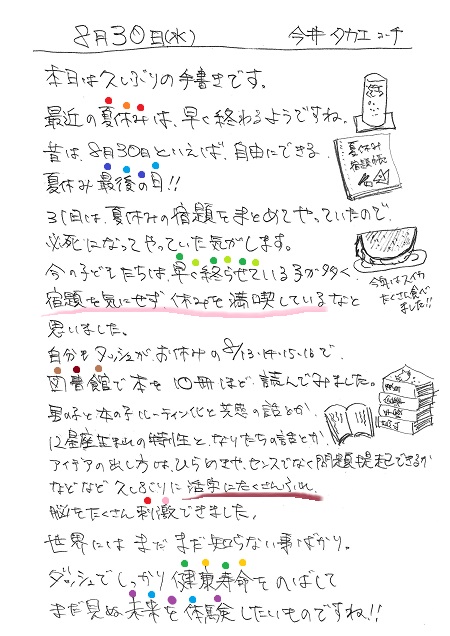 8月30日(水) 今井 タカエ コーチ
本日は久しぶりの手書きです。
最近の夏休みは、早く終わるようですね。
昔は、8月30日といえば、自由にできる
夏休み最後の日!!
31日は、夏休みの宿題をまとめてやっていたので、
必死になってやっていた気がします。
今の子どもたちは、早く終らせている子が多く、
宿題を気にせず、休みを満喫しているなと
思いました。
自分もダッシュがお休みの8/13・14・15・16で、
図書館で本を10冊ほど読んでみました。
男の子と女の子ルーティン化と共感の話とか、
12星座生まれの特性と、なりたちの話とか、
アイデアの出し方は、ひらめきや、センスでなく問題提起できるか
などなど久しぶりに活字にたくさんふれ、
脳をたくさん刺激できました。
世界にはまだまだ知らない事ばかり。
ダッシュでしっかり健康寿命をのばして
まだ見ぬ未来を体験したいものですね!!
夏休み
宿題帳
今年はスイカ
たくさん食べ
ました!!